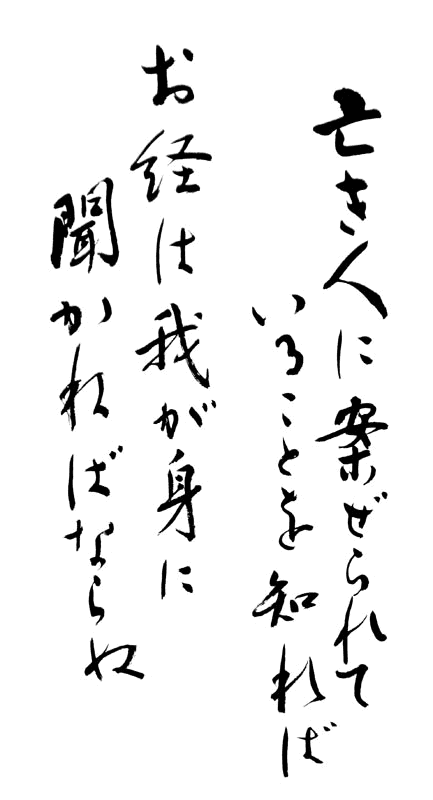 亡き人に案ぜられて
いることを知れば
お経は我が身に
聞かねばならぬ